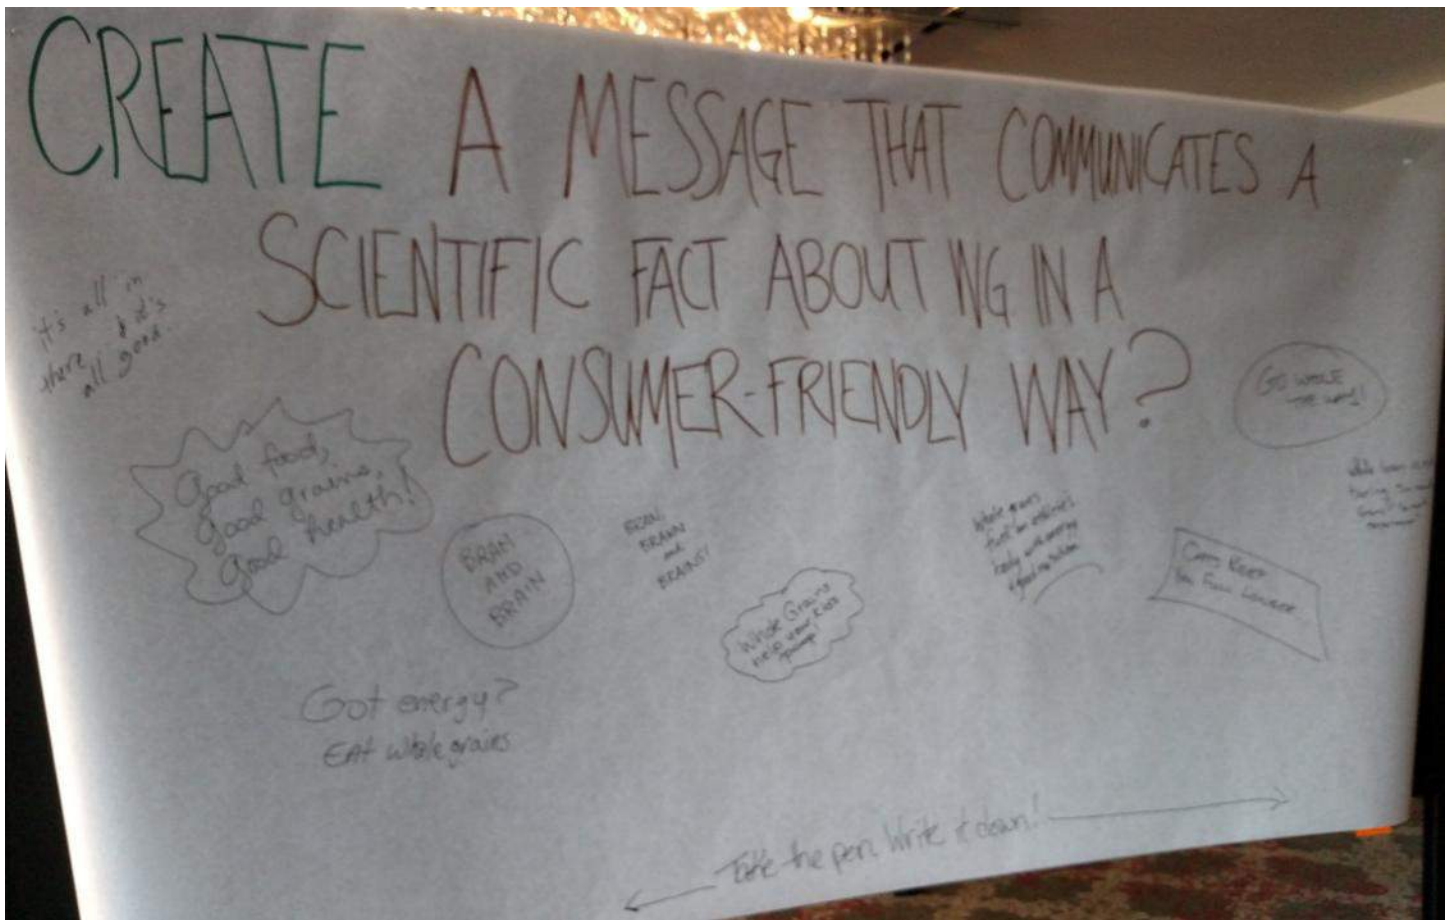 CREATE A MESSAGE THAT COMMUNICATES A
SCIENTIFIC FACT ABOUT WG IN A
CONSUMER-FRIENDLY WAY?
it's all in
there & it's
all good.
Good food,
Good grains,
Good health!
BRAN
AND
BRAIN
BRAN,
BRAWN
and
BRAINS!
Whole Grains
help your kids
Whole grains
fuel an
body with energy
GO WHOLE
THE
You
Got energy?
EAT whole grains
Take the pen. Write it down!